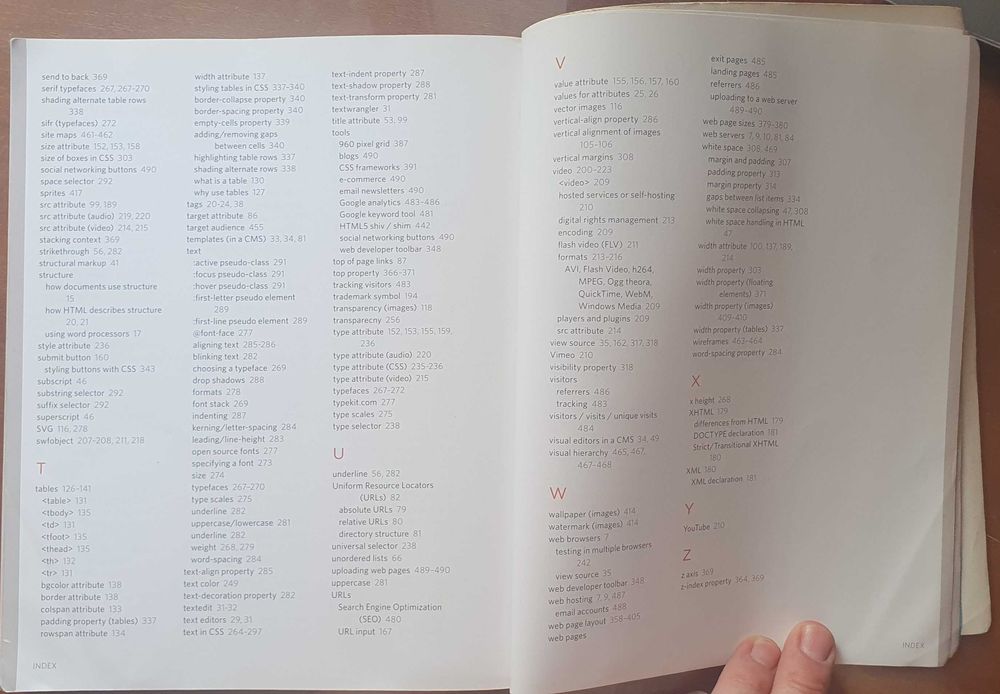 send to back 369
serif typefaces 267, 267-270
shading alternate table rows
338
sifr (typefaces) 272
site maps 461-462
size attribute 152, 153, 158
size of boxes in CSS 303
social networking buttons 490
space selector 292
sprites 417
src attribute 99, 189
src attribute (audio) 219, 220
src attribute (video) 214, 215
stacking context 369
strikethrough 56, 282
structural markup 41
structure
how documents use structure
15
how HTML describes structure
20, 21
using word processors 17
style attribute 236
submit button 160
styling buttons with CSS 343
subscript 46
substring selector 292
suffix selector 292
superscript 46
SVG 116, 278
swfobject 207-208, 211, 218
T
tables 126-141
<table> 131
<tbody> 135
<td> 131
<tfoot> 135
<thead> 135
<th> 132
<tr> 131
bgcolor attribute 138
border attribute 138
colspan attribute 133
padding property (tables) 337
rowspan attribute 134
width attribute 137
styling tables in CSS 337-340
border-collapse property 340
border-spacing property 340
empty-cells property 339
adding/removing gaps
between cells 340
highlighting table rows 337
shading alternate rows 338
what is a table 130
why use tables 127
tags 20-24, 38
target attribute 86
target audience 455
templates (in a CMS) 33, 34, 81
text
:active pseudo-class 291
:focus pseudo-class 291
:hover pseudo-class 291
:first-letter pseudo element
289
:first-line pseudo element 289
@font-face 277
aligning text 285-286
blinking text 282
choosing a typeface 269
drop shadows 288
formats 278
font stack 269
indenting 287
kerning/letter-spacing 284
leading/line-height 283
open source fonts 277
specifying a font 273
size 274
typefaces 267-270
type scales 275
underline 282
uppercase/lowercase 281
underline 282
weight 268, 279
word-spacing 284
text-align property 285
text color 249
text-decoration property 282
textedit 31-32
text editors 29, 31
text in CSS 264-297
text-indent property 287
text-shadow property 288
text-transform property 281
textwrangler 31
title attribute 53, 99
tools
960 pixel grid 387
blogs 490
CSS frameworks 391
e-commerce 490
email newsletters 490
Google analytics 483-486
Google keyword tool 481
HTML5 shiv / shim 442
social networking buttons 490
web developer toolbar 348
top of page links 87
top property 366-371
tracking visitors 483
trademark symbol 194
transparency (images) 118
transparecny 256
type attribute 152, 153, 155, 159,
236
type attribute (audio) 220
type attribute (CSS) 235-236
type attribute (video) 215
typefaces 267-272
typekit.com 277
type scales 275
type selector 238
U
underline 56, 282
Uniform Resource Locators
(URLs) 82
absolute URLs 79
relative URLs 80
directory structure 81
universal selector 238
unordered lists 66
uploading web pages 489-490
uppercase 281
URLs
Search Engine Optimization
(SEO) 480
URL input 167
INDEX
V
value attribute 155, 156, 157, 160
values for attributes 25, 26
vector images 116
vertical-align property 286
vertical alignment of images
105-106
vertical margins 308
video 200-223
<video> 209
hosted services or self-hosting
210
digital rights management 213
encoding 209
flash video (FLV) 211
formats 213-216
AVI, Flash Video, h264,
MPEG, Ogg theora,
QuickTime, WebM,
Windows Media 209
players and plugins 209
src attribute 214
view source 35, 162, 317, 318
Vimeo 210
visibility property 318
visitors
referrers 486
tracking 483
visitors / visits / unique visits
484
visual editors in a CMS 34, 49
visual hierarchy 465, 467,
467-468
W
wallpaper (images) 414
watermark (images) 414
web browsers 7
testing in multiple browsers
242
view source 35
web developer toolbar 348
web hosting 7, 9, 487
email accounts 488
web page layout 358-405
web pages
exit pages 485
landing pages 485
referrers 486
uploading to a web server
489-490
web page sizes 379-380
web servers 7, 9, 10, 81, 84
white space 308, 469
margin and padding 307
padding property 313
margin property 314
gaps between list items 334
white space collapsing 47, 308
white space handling in HTML
47
width attribute 100, 137, 189,
214
width property 303
width property (floating
elements) 371
width property (images)
409-410
width property (tables) 337
wireframes 463-464
word-spacing property 284
X
x height 268
XHTML 179
differences from HTML 179
DOCTYPE declaration 181
Strict/Transitional XHTML
180
XML 180
XML declaration 181
Y
YouTube 210
Z
z axis 369
z-index property 364, 369
INDEX